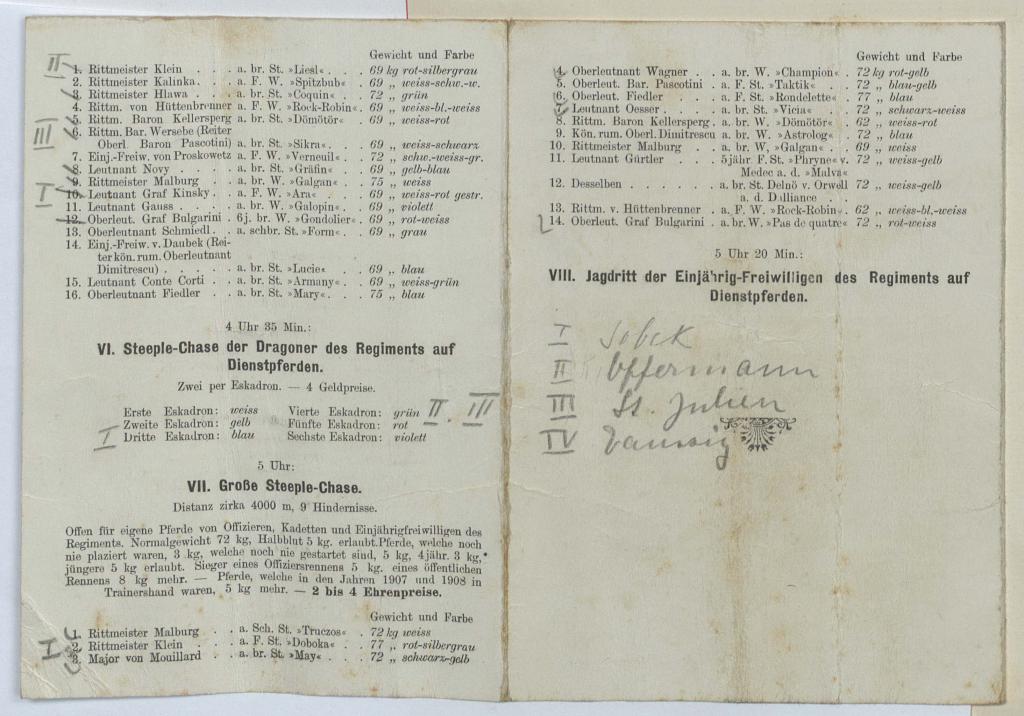 Gewicht und Farbe
II 1. Rittmeister Klein . . . a. br. St. »Liesl« . . . 69 kg rot-silbergrau
2. Rittmeister Kalinka . . . a. F. W. »Spitzbub« . . 69 „ weiss-schw.-w.
3. Rittmeister Hlawa . . . a. br. St. »Coquin« . . . 72 „ grün
4. Rittm. von Hüttenbrenner a. F. W. »Rock-Robin« . 69 „ weiss-bl.-weiss
5. Rittm. Baron Kellersperg a. br. St. »Dömötör« . 69 „ weiss-rot
III 6. Rittm. Bar. Wersebe (Reiter
Oberl. Baron Pascotini) a. br. St. »Sikra« . . . 69 „ weiss-schwarz
7. Einj.-Freiw. von Proskowetz a. F. W. »Verneuil« . . 72 „ schw.-weiss-gr.
8. Leutnant Novy . . . . a. br. St. »Gräfin« . . . 69 „ gelb-blau
9. Rittmeister Malburg . . a. br. W. »Galgan« . . . 75 „ weiss
I 10. Leutnant Graf Kinsky . . a. F. W. »Ara« . . . . 69 „ weiss-rot gestr.
11. Leutnant Gauss . . . . a. br. W. »Galopin« . . 69 „ violett
12. Oberleut. Graf Bulgarini . 6j. br. W. »Gondolier« . 69 „ rot-weiss
13. Oberleutnant Schmiedl . . a. schbr. St. »Form« . . 69 „ grau
14. Einj.-Freiw. v. Daubek (Rei-
ter kön. rum. Oberleutnant
Dimitrescu) . . . . . a. br. St. »Lucie« . . . 69 „ blau
15. Leutnant Conte Corti . . a. br. St. »Armany« . . 69 „ weiss-grün
16. Oberleutnant Fiedler . . a. br. St. »Mary« . . . 75 „ blau
4 Uhr 35 Min.:
VI. Steeple-Chase der Dragoner des Regiments auf
Dienstpferden.
Zwei per Eskadron. — 4 Geldpreise.
Erste Eskadron: weiss Vierte Eskadron: grün II. III
Zweite Eskadron: gelb Fünfte Eskadron: rot
I Dritte Eskadron: blau Sechste Eskadron: violett
5 Uhr:
VII. Große Steeple-Chase.
Distanz zirka 4000 m, 9 Hindernisse.
Offen für eigene Pferde von Offizieren, Kadetten und Einjährigfreiwilligen des
Regiments. Normalgewicht 72 kg, Halbblut 5 kg. erlaubt. Pferde, welche noch
nie plaziert waren, 3 kg, welche noch nie gestartet sind, 5 kg, 4jähr. 3 kg,
jüngere 5 kg erlaubt. Sieger eines Offiziersrennens 5 kg. eines öffentlichen
Rennens 8 kg mehr. — Pferde, welche in den Jahren 1907 und 1908 in
Trainershand waren, 5 kg mehr. — 2 bis 4 Ehrenpreise.
Gewicht und Farbe
1. Rittmeister Malburg . . a. Sch. St. »Truczos« . 72 kg weiss
I 2. Rittmeister Klein . . . a. F. St. »Doboka« . . 77 „ rot-silbergrau
3. Major von Mouillard . . a. br. St. »May« . . . 72 „ schwarz-gelb
Gewicht und Farbe
4. Oberleutnant Wagner . . a. br. W. »Champion« . 72 kg rot-gelb
5. Oberleut. Bar. Pascotini . a. F. St. »Taktik« . . 72 „ blau-gelb
6. Oberleut. Fiedler . . . a. F. St. »Rondelette« . 77 „ blau
7. Leutnant Oesser . . . . a. br. St. »Vicia« . . . 72 „ schwarz-weiss
8. Rittm. Baron Kellersperg . a. br. W. »Dömötör« . 62 „ weiss-rot
9. Kön. rum. Oberl. Dimitrescu a. br. W. »Astrolog« . . 72 „ blau
10. Rittmeister Malburg . . a. br. W, »Galgan« . . 69 „ weiss
11. Leutnant Gürtler . . . 5jähr. F. St. »Phryne« v. 72 „ weiss-gelb
Medec a. d. »Malva«
12. Desselben . . . . . . a. br. St. Delnö v. Orwell 72 „ weiss-gelb
a. d. Dalliance . .
13. Rittm. v. Hüttenbrenner . a. F. W. »Rock-Robin« . 62 „ weiss-bl.-weiss
14. Oberleut. Graf Bulgarini . a. br. W. »Pas de quatre« 72 „ rot-weiss
5 Uhr 20 Min.:
VIII. Jagdritt der Einjährig-Freiwilligen des Regiments auf
Dienstpferden.
I Sobek
II Offermann
III St. Julien
IV Daussig